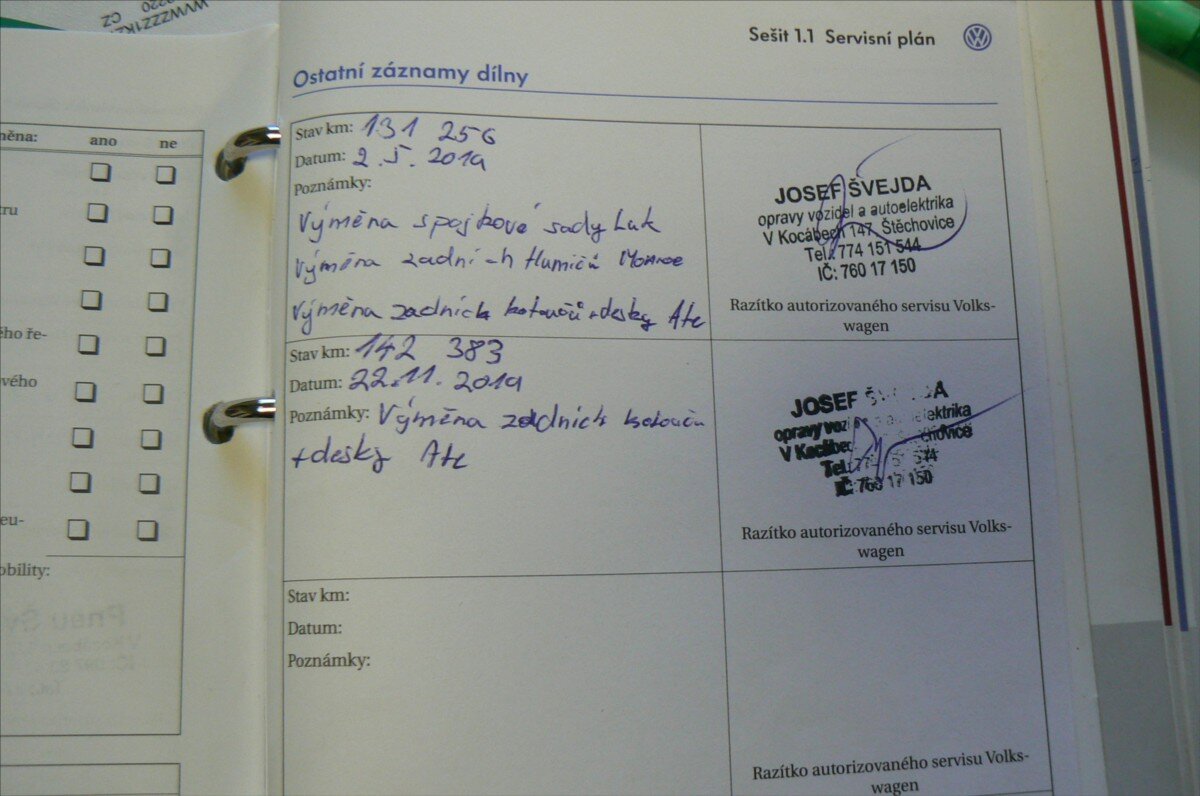 WVWZZZ1KZ
CZ
Sešit 1.1 Servisní plán
Ostatní záznamy dílny
měna: ano ne
tru
ého ře-
ového
eu-
obility:
Stav km: 131 256
Datum: 2.5.2019
Poznámky:
Výměna spojkové sady Luk
Výměna zadních tlumičů Monroe
Výměna zadních kotoučů + desky Ate
JOSEF ŠVEJDA
opravy vozidel a autoelektrika
V Kocábech 147, Štěchovice
Tel.: 774 151 544
IČ: 760 17 150
Razítko autorizovaného servisu Volks-
wagen
Stav km: 142 383
Datum: 22.11.2019
Poznámky: Výměna zadních kotoučů
+ desky Ate
JOSEF
opravy vozi elektrika
V Kocábec ěchovice
Tel.: 77
IČ: 760 17 150
Razítko autorizovaného servisu Volks-
wagen
Stav km:
Datum:
Poznámky:
Razítko autorizovaného servisu Volks-
wagen